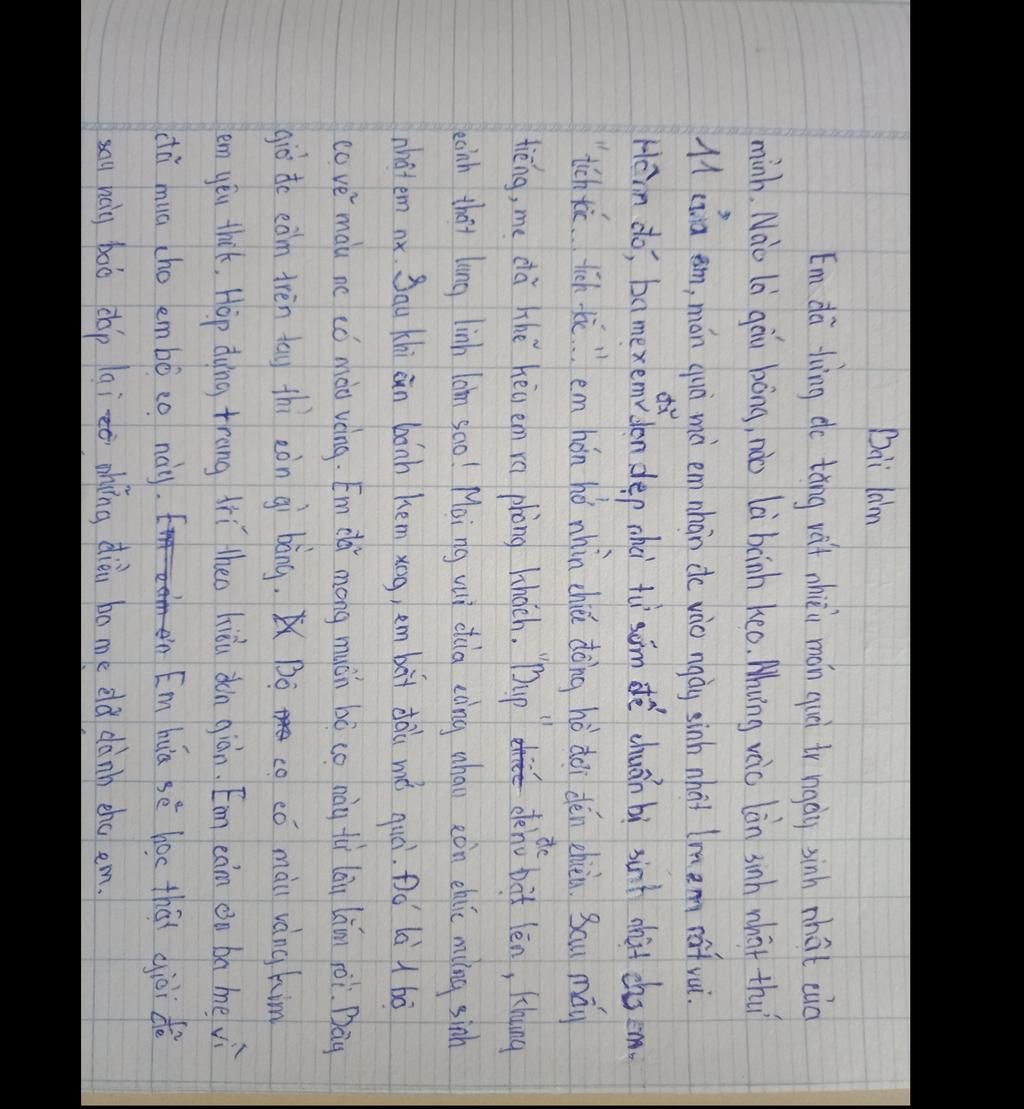 Bài làm
Em đã từng đc tặng rất nhiều món quà tr ngày sinh nhật của
mình. Nào là gấu bông, nào là bánh kẹo. Nhưng vào lần sinh nhật thứ
11 của em, món quà mà em nhận đc vào ngày sinh nhật lm em rất vui.
Hôm đó, ba mẹ x em đã dọn dẹp nhà từ sớm để chuẩn bị sinh nhật cho em.
"tích tắc... tích tắc..." em hớn hở nhìn chiếc đồng hồ đợi đến chiều. Sau mấy
tiếng, mẹ đã khẽ kêu em ra phòng khách. "Bụp" đèn đc bật lên, khung
cảnh thật lung linh làm sao! Mọi ng vui đùa cùng nhau còn chúc mừng sinh
nhật em nx. Sau khi ăn bánh kem xog, em bắt đầu mở quà. Đó là 1 bộ
cọ vẽ màu nc có màu vàng. Em đã mong muốn bộ cọ này từ lâu lắm rồi. Bây
giờ đc cầm trên tay thì còn gì bằng. Bộ cọ có màu vàng kim
em yêu thik. Hộp đựng trang trí theo kiểu đơn giản. Em cảm ơn ba mẹ vì
đã mua cho em bộ cọ này. Em cảm ơn Em hứa sẽ học thật giỏi để
sau này báo đáp lại những điều ba mẹ đã dành cho em.